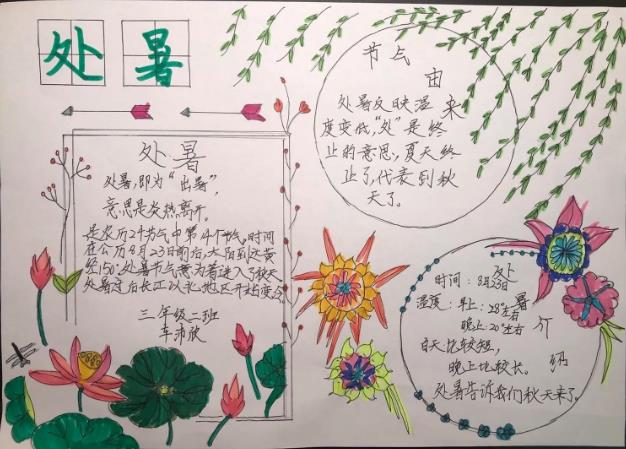 处暑
处暑
处暑，即为“出暑”，
意思是炎热离开。
是农历24节气中第14个节气，时间
在公历8月23日前后，太阳到达黄
经150°。处暑节气意为着进入了秋天
处暑过后长江以北地区开始变
三年级二班
车沛欣
节气由来
处暑反映温
度变低，“处”是终
止的意思，夏天终
止了，代表到秋
天了。
处暑介绍
时间：8月23日
温度：早上：28°左右
晚上：20°左右
白天比较短，
晚上比较长。
处暑告诉我们秋天来了。